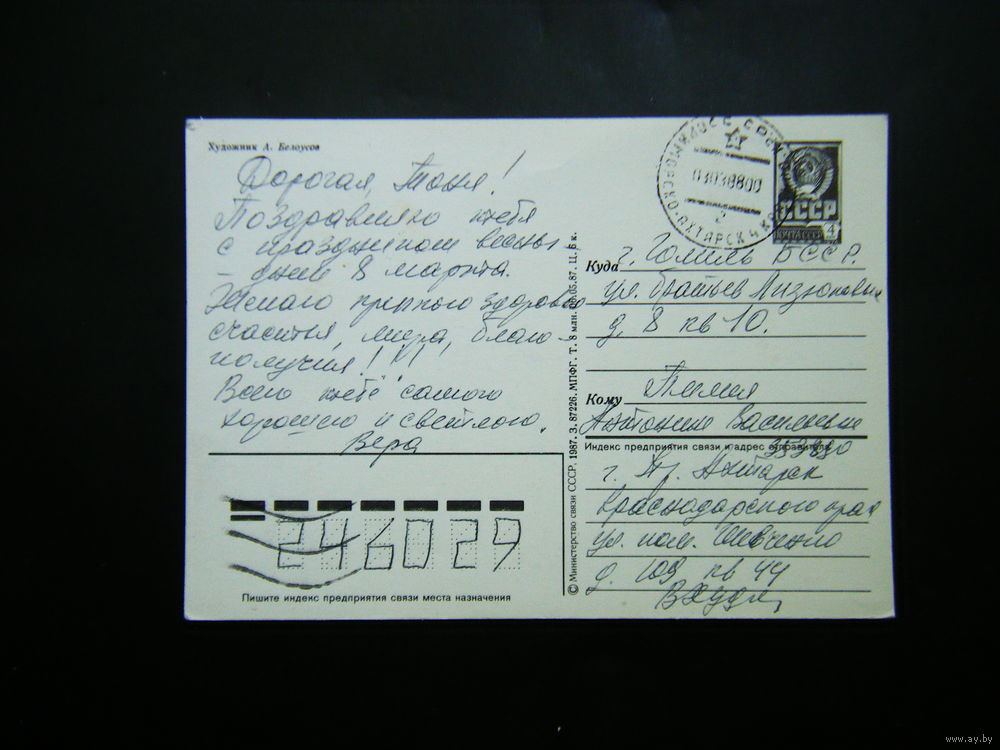 Художник А. Белоусов
Дорогая, Тоня!
Поздравляю тебя
с праздником весны
- днем 8 марта.
Желаю крепкого здоровья
счастья, мира, благо-
получия!!!
Всего тебе самого
хорошего и светлого.
Вера
246029
Пишите индекс предприятия связи места назначения
© Министерство связи СССР. 1987. З. 87226. МПФГ. Т. 8 млн. 05.87. Ц. 6 к.
ПРИМОРСКО-АХТАРСК
2
ПОЧТА СССР
4
СССР
Куда г. Гомель БССР.
ул. Братьев Лизюковых
д. 8 кв 10.
Кому
Антонине Васильевне
Индекс предприятия связи и адрес отправителя
г. Пр. Ахтарск
Краснодарского края
ул. Шевченко
д. 109 кв 44
www.ay.by